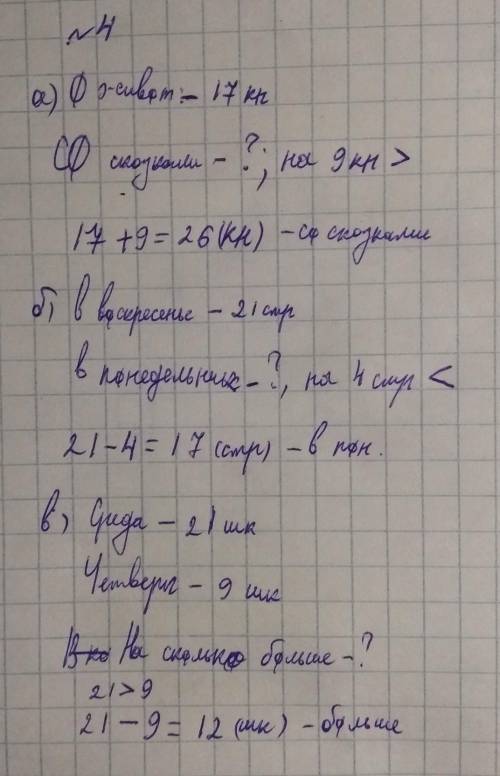 №4
а) О живот. – 17 кн
Со сказками – ?, на 9 кн >
17 + 9 = 26 (кн) – со сказками
б) В воскресенье – 21 стр
В понедельник – ?, на 4 стр <
21 – 4 = 17 (стр) – в пон.
в) Среда – 21 шк
Четверг – 9 шк
На сколько больше – ?
21 > 9
21 – 9 = 12 (шк) – больше